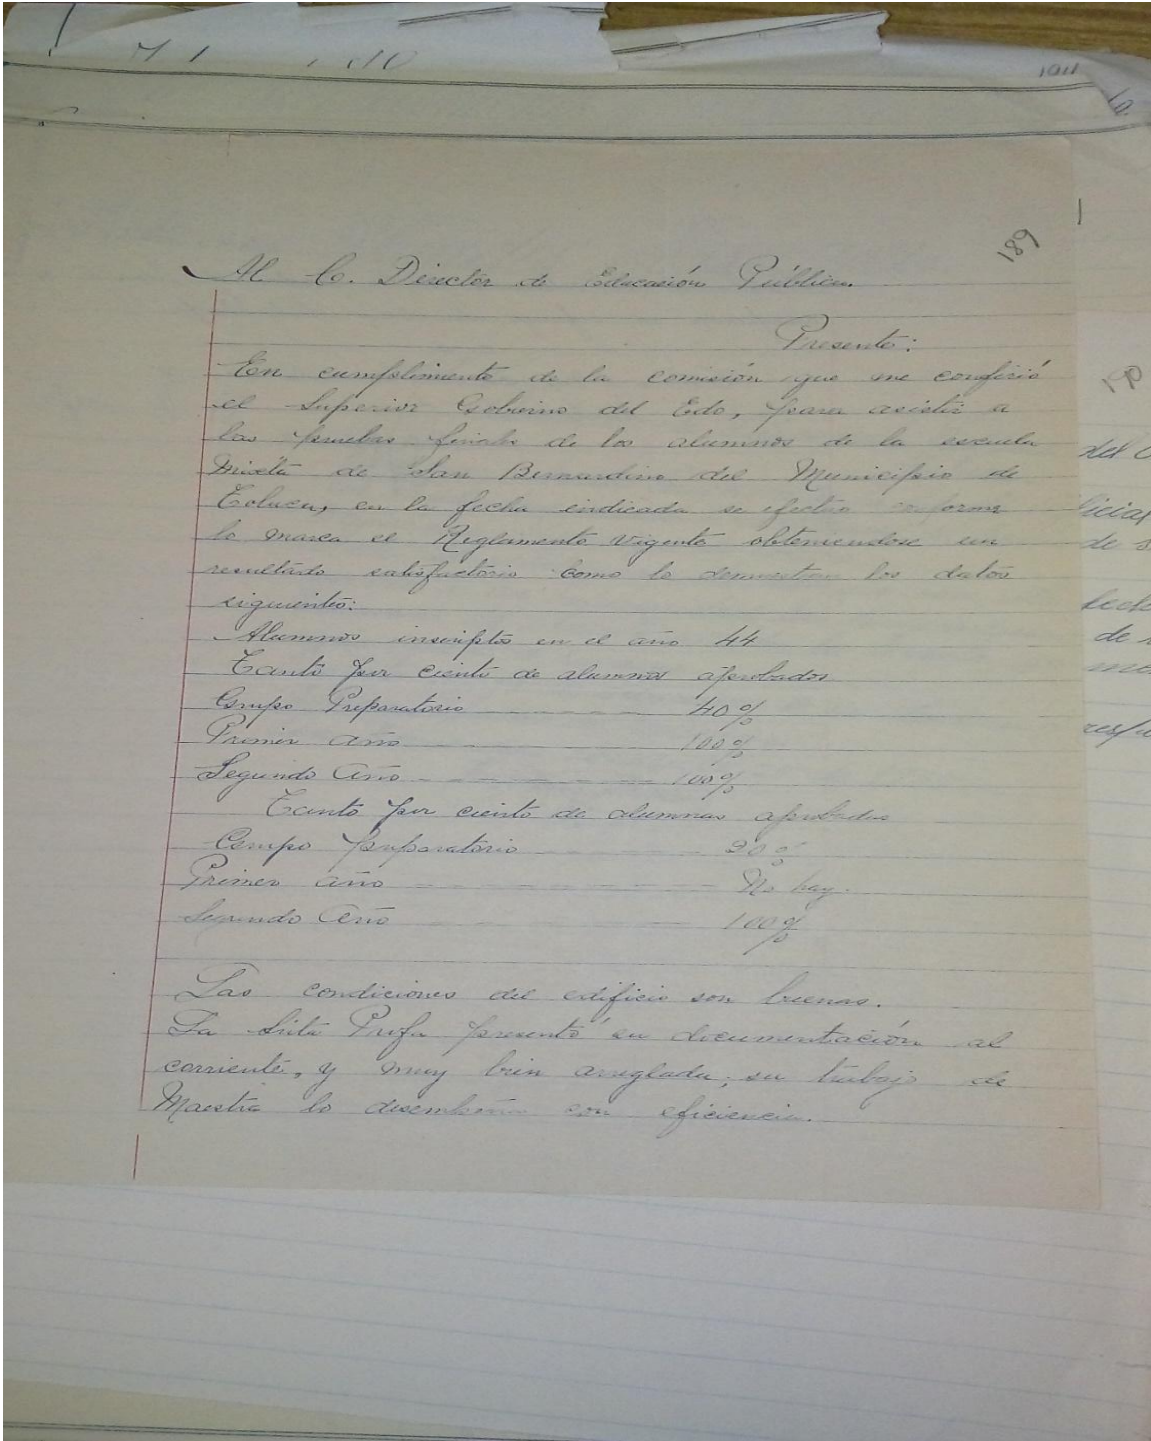 1911
189
Al C. Director de Educación Pública.
Presente:
En cumplimiento de la comisión que me confirió
el Superior Gobierno del Edo, para asistir a
las pruebas finales de los alumnos de la escuela
Mixta de San Bernardino del Municipio de
Toluca, en la fecha indicada se efectuo conforme
lo marca el Reglamento vigente obteniendose un
resultado satisfactorio como lo demuestran los datos
siguientes:
Alumnos inscriptos en el año 44
Tanto por ciento de alumnos aprobados
Grupo Preparatorio 40%
Primer año 100%
Segundo Año 100%
Tanto por ciento de alumnas aprobadas
Grupo preparatorio
Primer año No hay.
Segundo Año 100%
Las condiciones del edificio son buenas.
La Srita Profa presentó su documentación al
corriente, y muy bien arreglada; su trabajo de
Maestra lo desempeña con eficiencia.
190
de